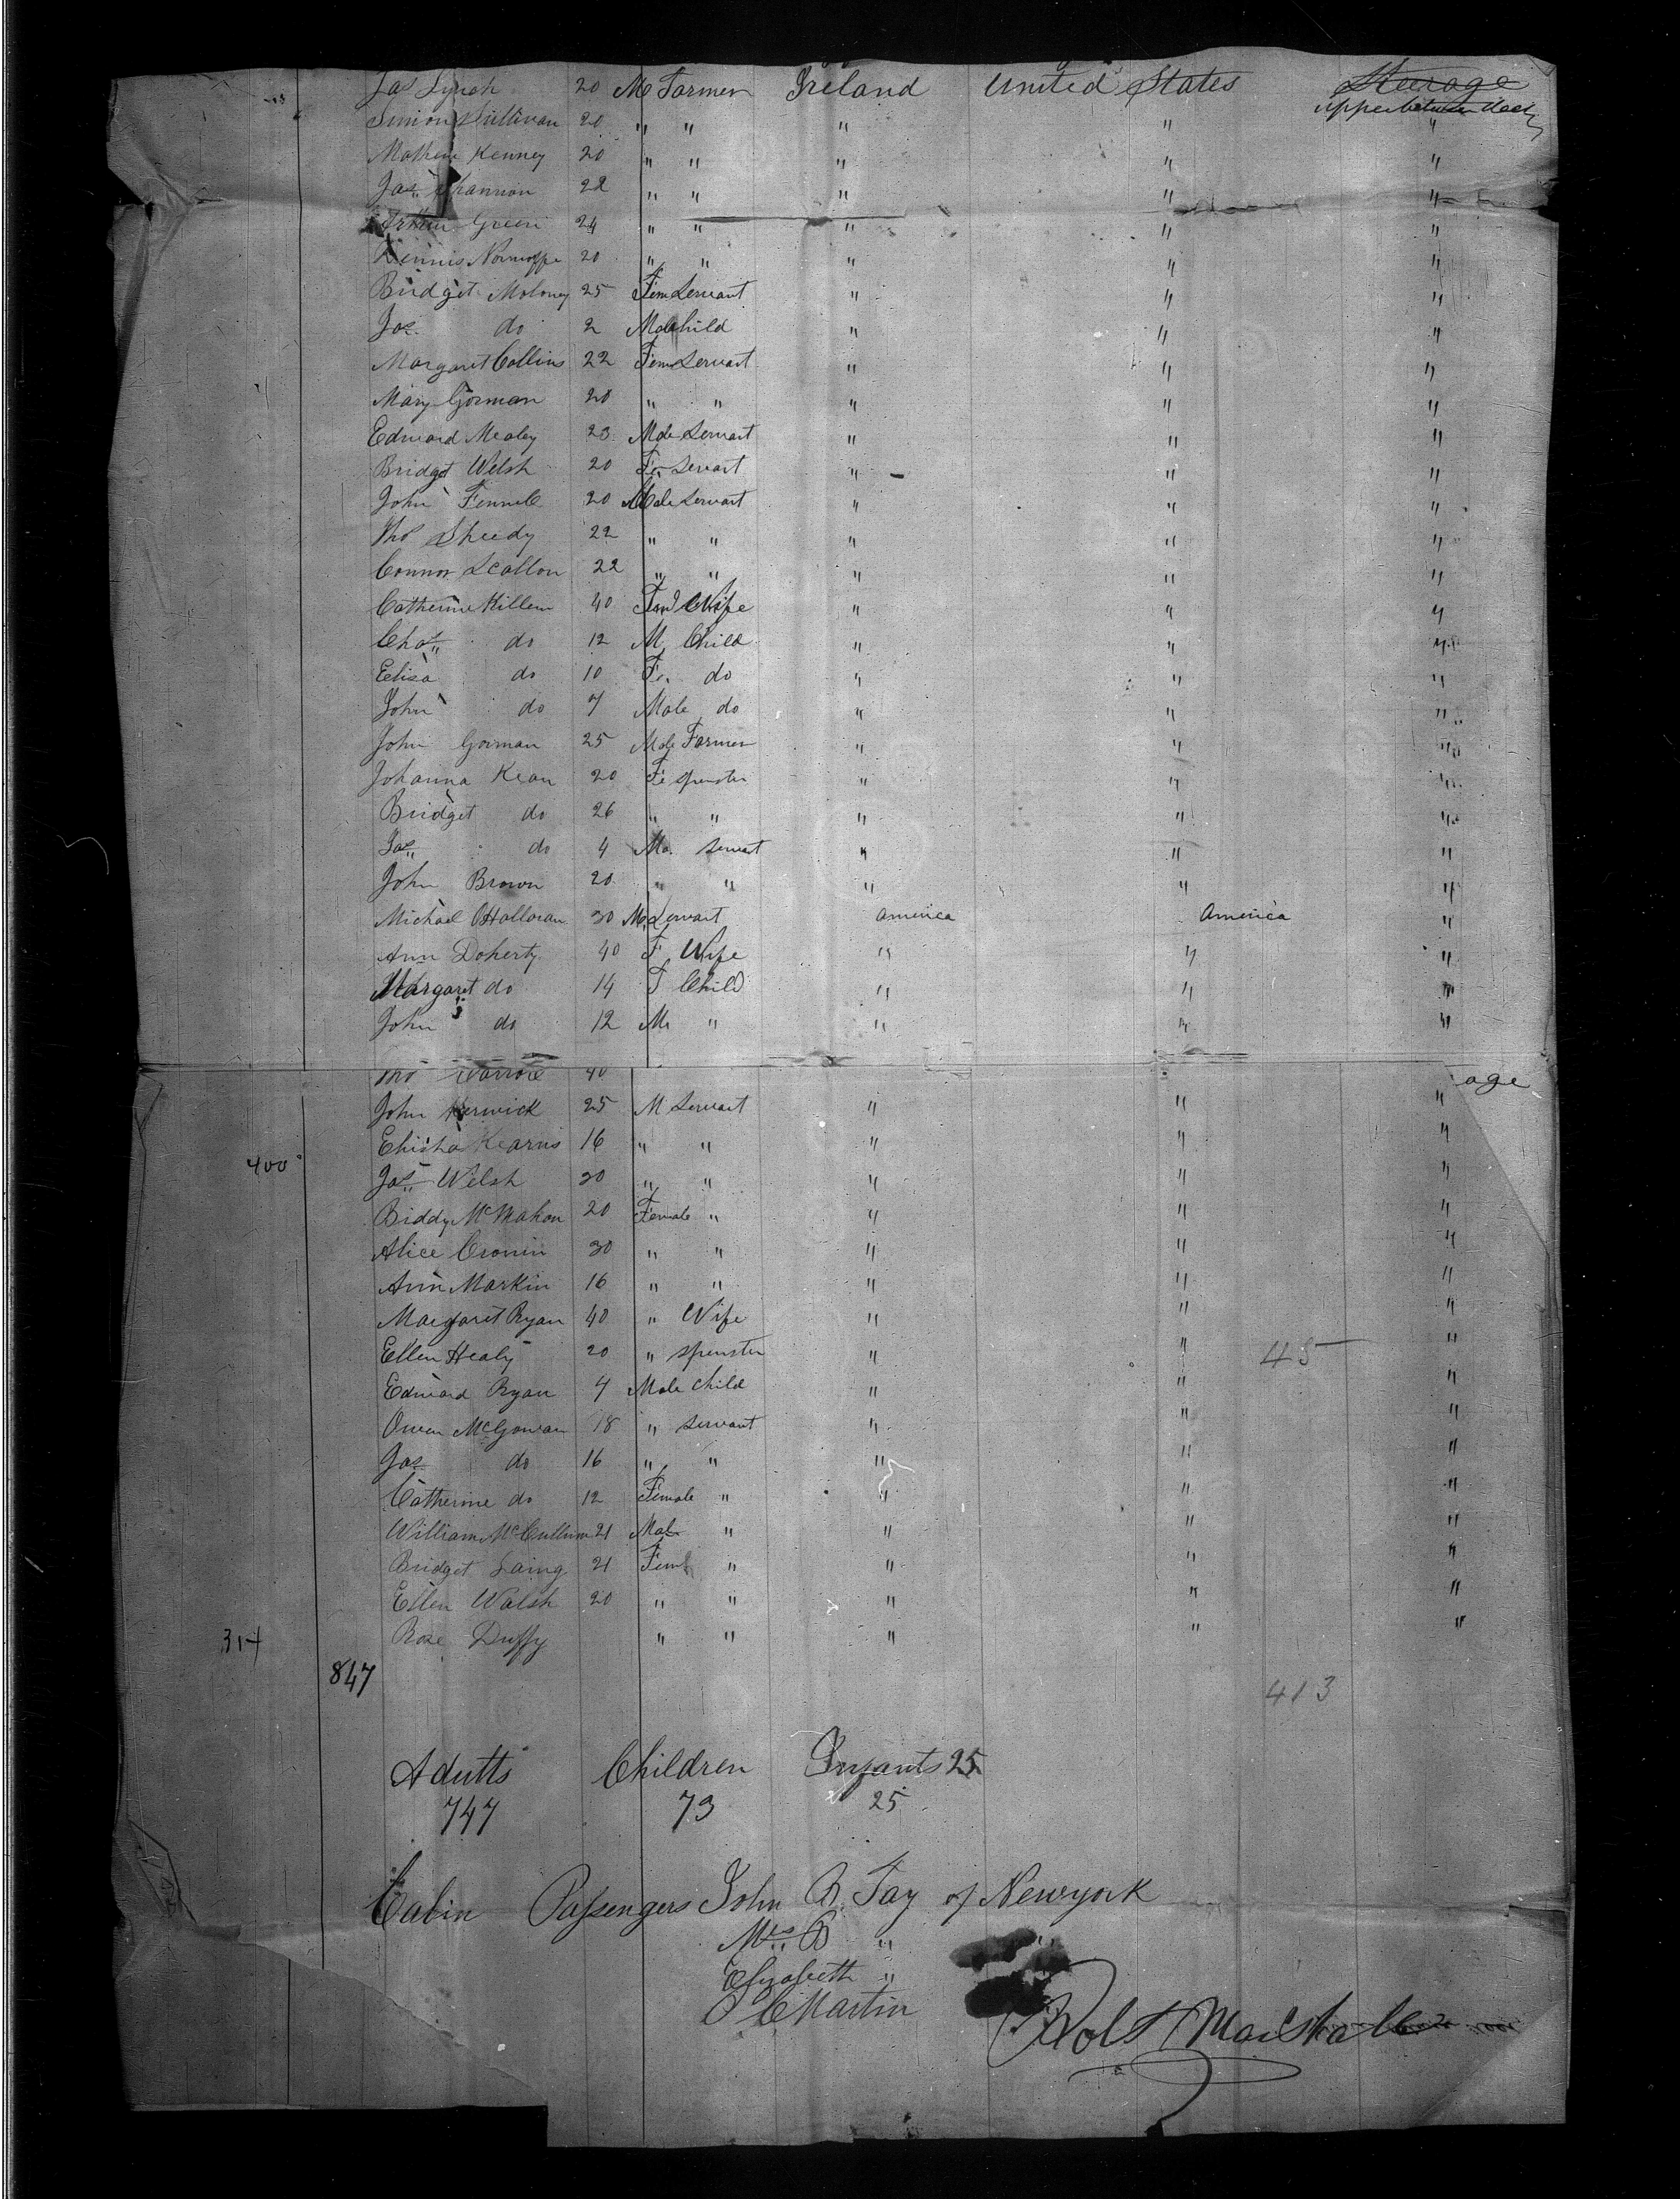 Jas Lynch 20 M Farmer Ireland United States Steerage
upper between decks
Simion Sullivan 20 " " " " "
Mathew Kenney 20 " " " " "
Jas Shannon 22 " " " " "
Green 24 " " " " "
Dennis 20 " " " " "
Bridget Moloney 25 Fem Servant " " "
Jas do 2 Male Child " " "
Margaret Collins 22 Fem Servant " " "
Mary Gorman 20 " " " " "
Edward Mealey 23 Male Servant " " "
Bridget Welsh 20 Fe Servant " " "
John Fennell 20 Male Servant " " "
Tho Sheedy 22 " " " " "
Connor Scallon 22 " " " " "
Catherine Killem 40 Wife " " "
Chas do 12 M Child " " "
Eliza do 10 Fe do " " "
John do 7 Male do " " "
John Gorman 25 Male Farmer " " "
Johanna Kean 20 Fe spinster " " "
Bridget do 26 " " " " "
Jas do 4 Ma servant " " "
John Brown 20 " " " " "
Michael O'Halloran 30 M Servant America America "
Ann Doherty 40 F Wife " " "
Margaret do 14 F Child " " "
John do 12 M " " " "
Tho 40 age
John Kerwick 25 M Servant " " "
Elisha Kearns 16 " " " " "
400 Jas Welsh 30 " " " " "
Biddy McMahon 20 Female " " " "
Alice Cronin 30 " " " " "
Ann Markin 16 " " " " "
Margaret Ryan 40 " Wife " " "
Ellen Healy 20 " spinster " " 45 "
Edward Ryan 4 Male Child " " "
Owen McGowan 18 " servant " " "
Jas do 16 " " " " "
Catherine do 12 Female " " " "
William McCullum 21 Male " " " "
Bridget Laing 21 Feml " " " "
Ellen Walsh 20 " " " " "
314 Rose Duffy " " " " "
847 413
Adults Children Infants 25
747 73 25
Cabin Passengers John B. Fay of Newyork
Mrs B " "
Elizabeth "
Martin
Robt Marshall